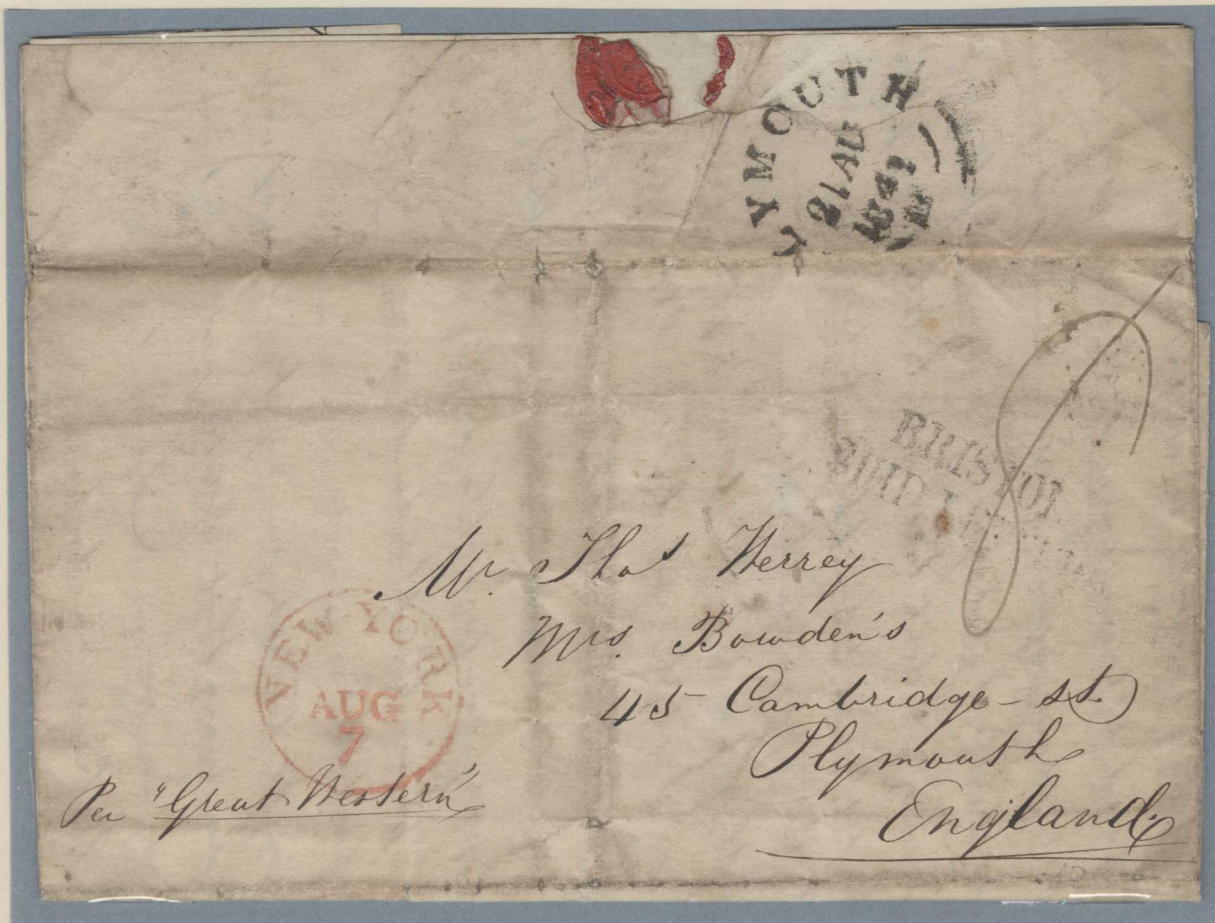 PLYMOUTH
21 AU
1841
BRISTOL
SHIP LETTER
8
Mr. Thos Werrey
Mrs. Bowden's
45 Cambridge - st.
Plymouth
England
NEW YORK
AUG
7
Per "Great Western"